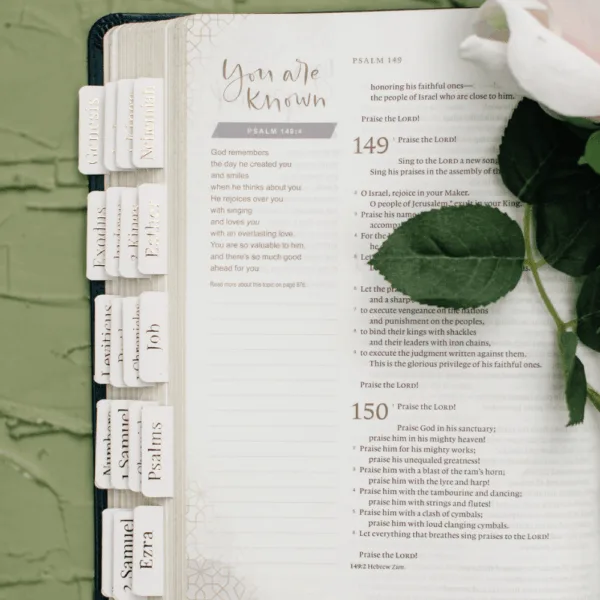 Genesis
Nehemiah
Exodus
2 Kings
Esther
Leviticus
Job
Numbers
1 Samuel
Psalms
2 Samuel
Ezra
You are
Known
PSALM 149:4
God remembers
the day he created you
and smiles
when he thinks about you.
He rejoices over you
with singing
and loves you
with an everlasting love.
You are so valuable to him,
and there's so much good
ahead for you.
Read more about this topic on page
PSALM 149
honoring his faithful ones—
the people of Israel who are close to him.
Praise the LORD!
149 1 Praise the LORD!
Sing to the LORD a new song
Sing his praises in the assembly of the
2 O Israel, rejoice in your Maker.
O people of Jerusalem,* exult in your King.
3 Praise his name
4 For the
he
5 Let
6 Let the
and a sharp
7 to execute vengeance on the nations
and punishment on the peoples,
8 to bind their kings with shackles
and their leaders with iron chains,
9 to execute the judgment written against them.
This is the glorious privilege of his faithful ones.
Praise the LORD!
150 1 Praise the LORD!
Praise God in his sanctuary;
praise him in his mighty heaven!
2 Praise him for his mighty works;
praise his unequaled greatness!
3 Praise him with a blast of the ram's horn;
praise him with the lyre and harp!
4 Praise him with the tambourine and dancing;
praise him with strings and flutes!
5 Praise him with a clash of cymbals;
praise him with loud clanging cymbals.
6 Let everything that breathes sing praises to the LORD!
Praise the LORD!
149:2 Hebrew Zion.